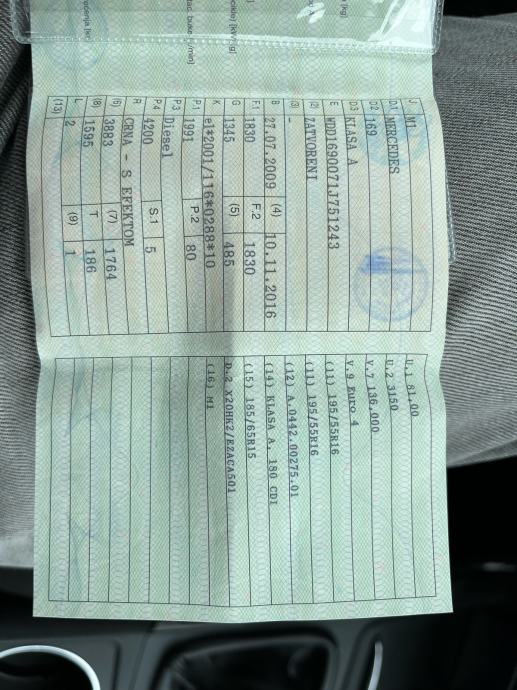 J M1
D.1 MERCEDES
D.2 169
D.3 KLASA A
E WDD1690071J751243
(2) ZATVORENI
(3) –
B 27.07.2009 (4) 10.11.2016
F.1 1830 F.2 1830
G 1345 (5) 485
K e1*2001/116*0288*10
P.1 1991 P.2 80
P.3 Diesel
P.4 4200 S.1 5
R CRNA - S EFEKTOM
(6) 3883 (7) 1764
(8) 1595 T 186
L 2 (9) 1
(13)
U.1 81,00
U.2 3150
V.7 136,000
V.9 Euro 4
(11) 195/55R16
(11) 195/55R16
(12) A.0442.00275.01
(14) KLASA A, 180 CDI
(15) 185/65R15
D.2 X20HK2/EZACA501
(16) M1